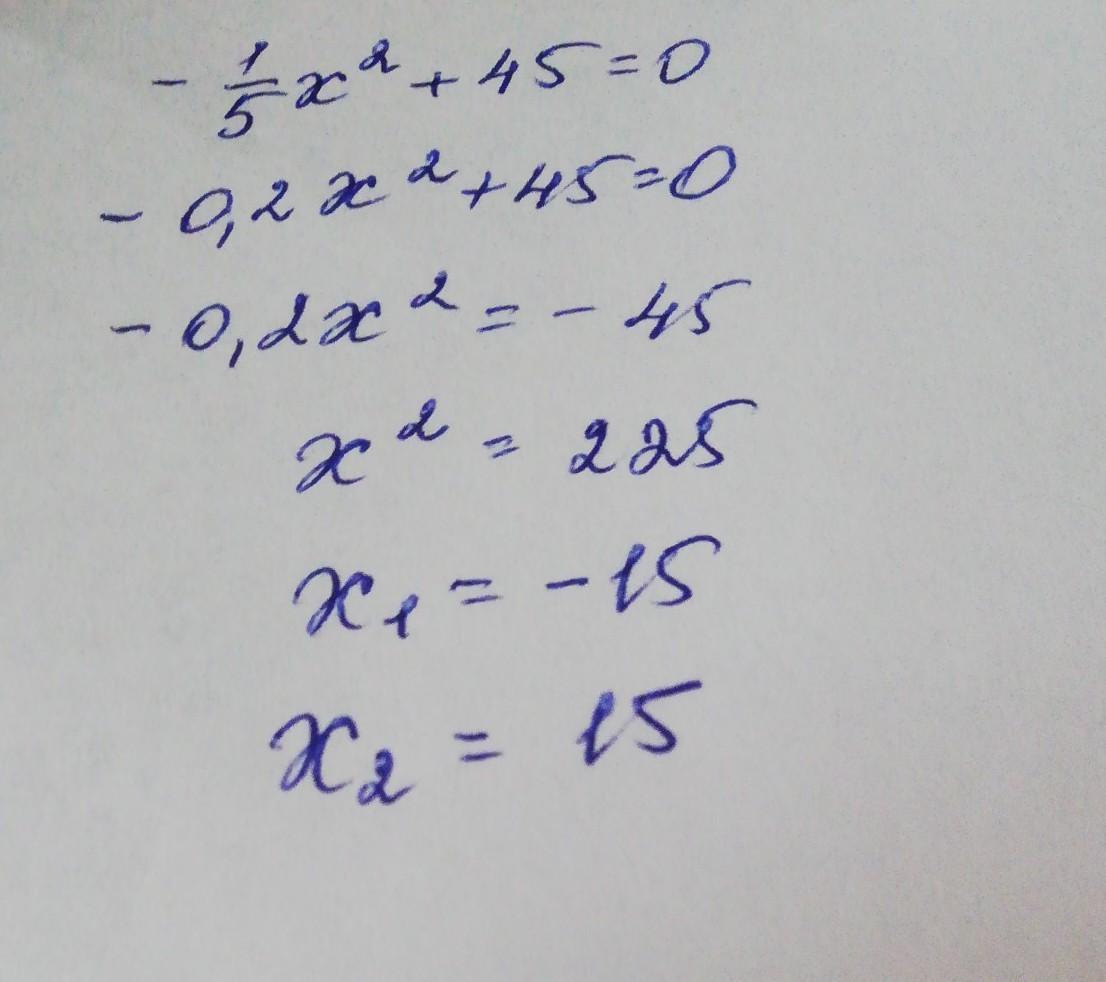 - 1/5 x² + 45 = 0
- 0,2 x² + 45 = 0
- 0,2x² = - 45
x² = 225
x₁ = - 15
x₂ = 15